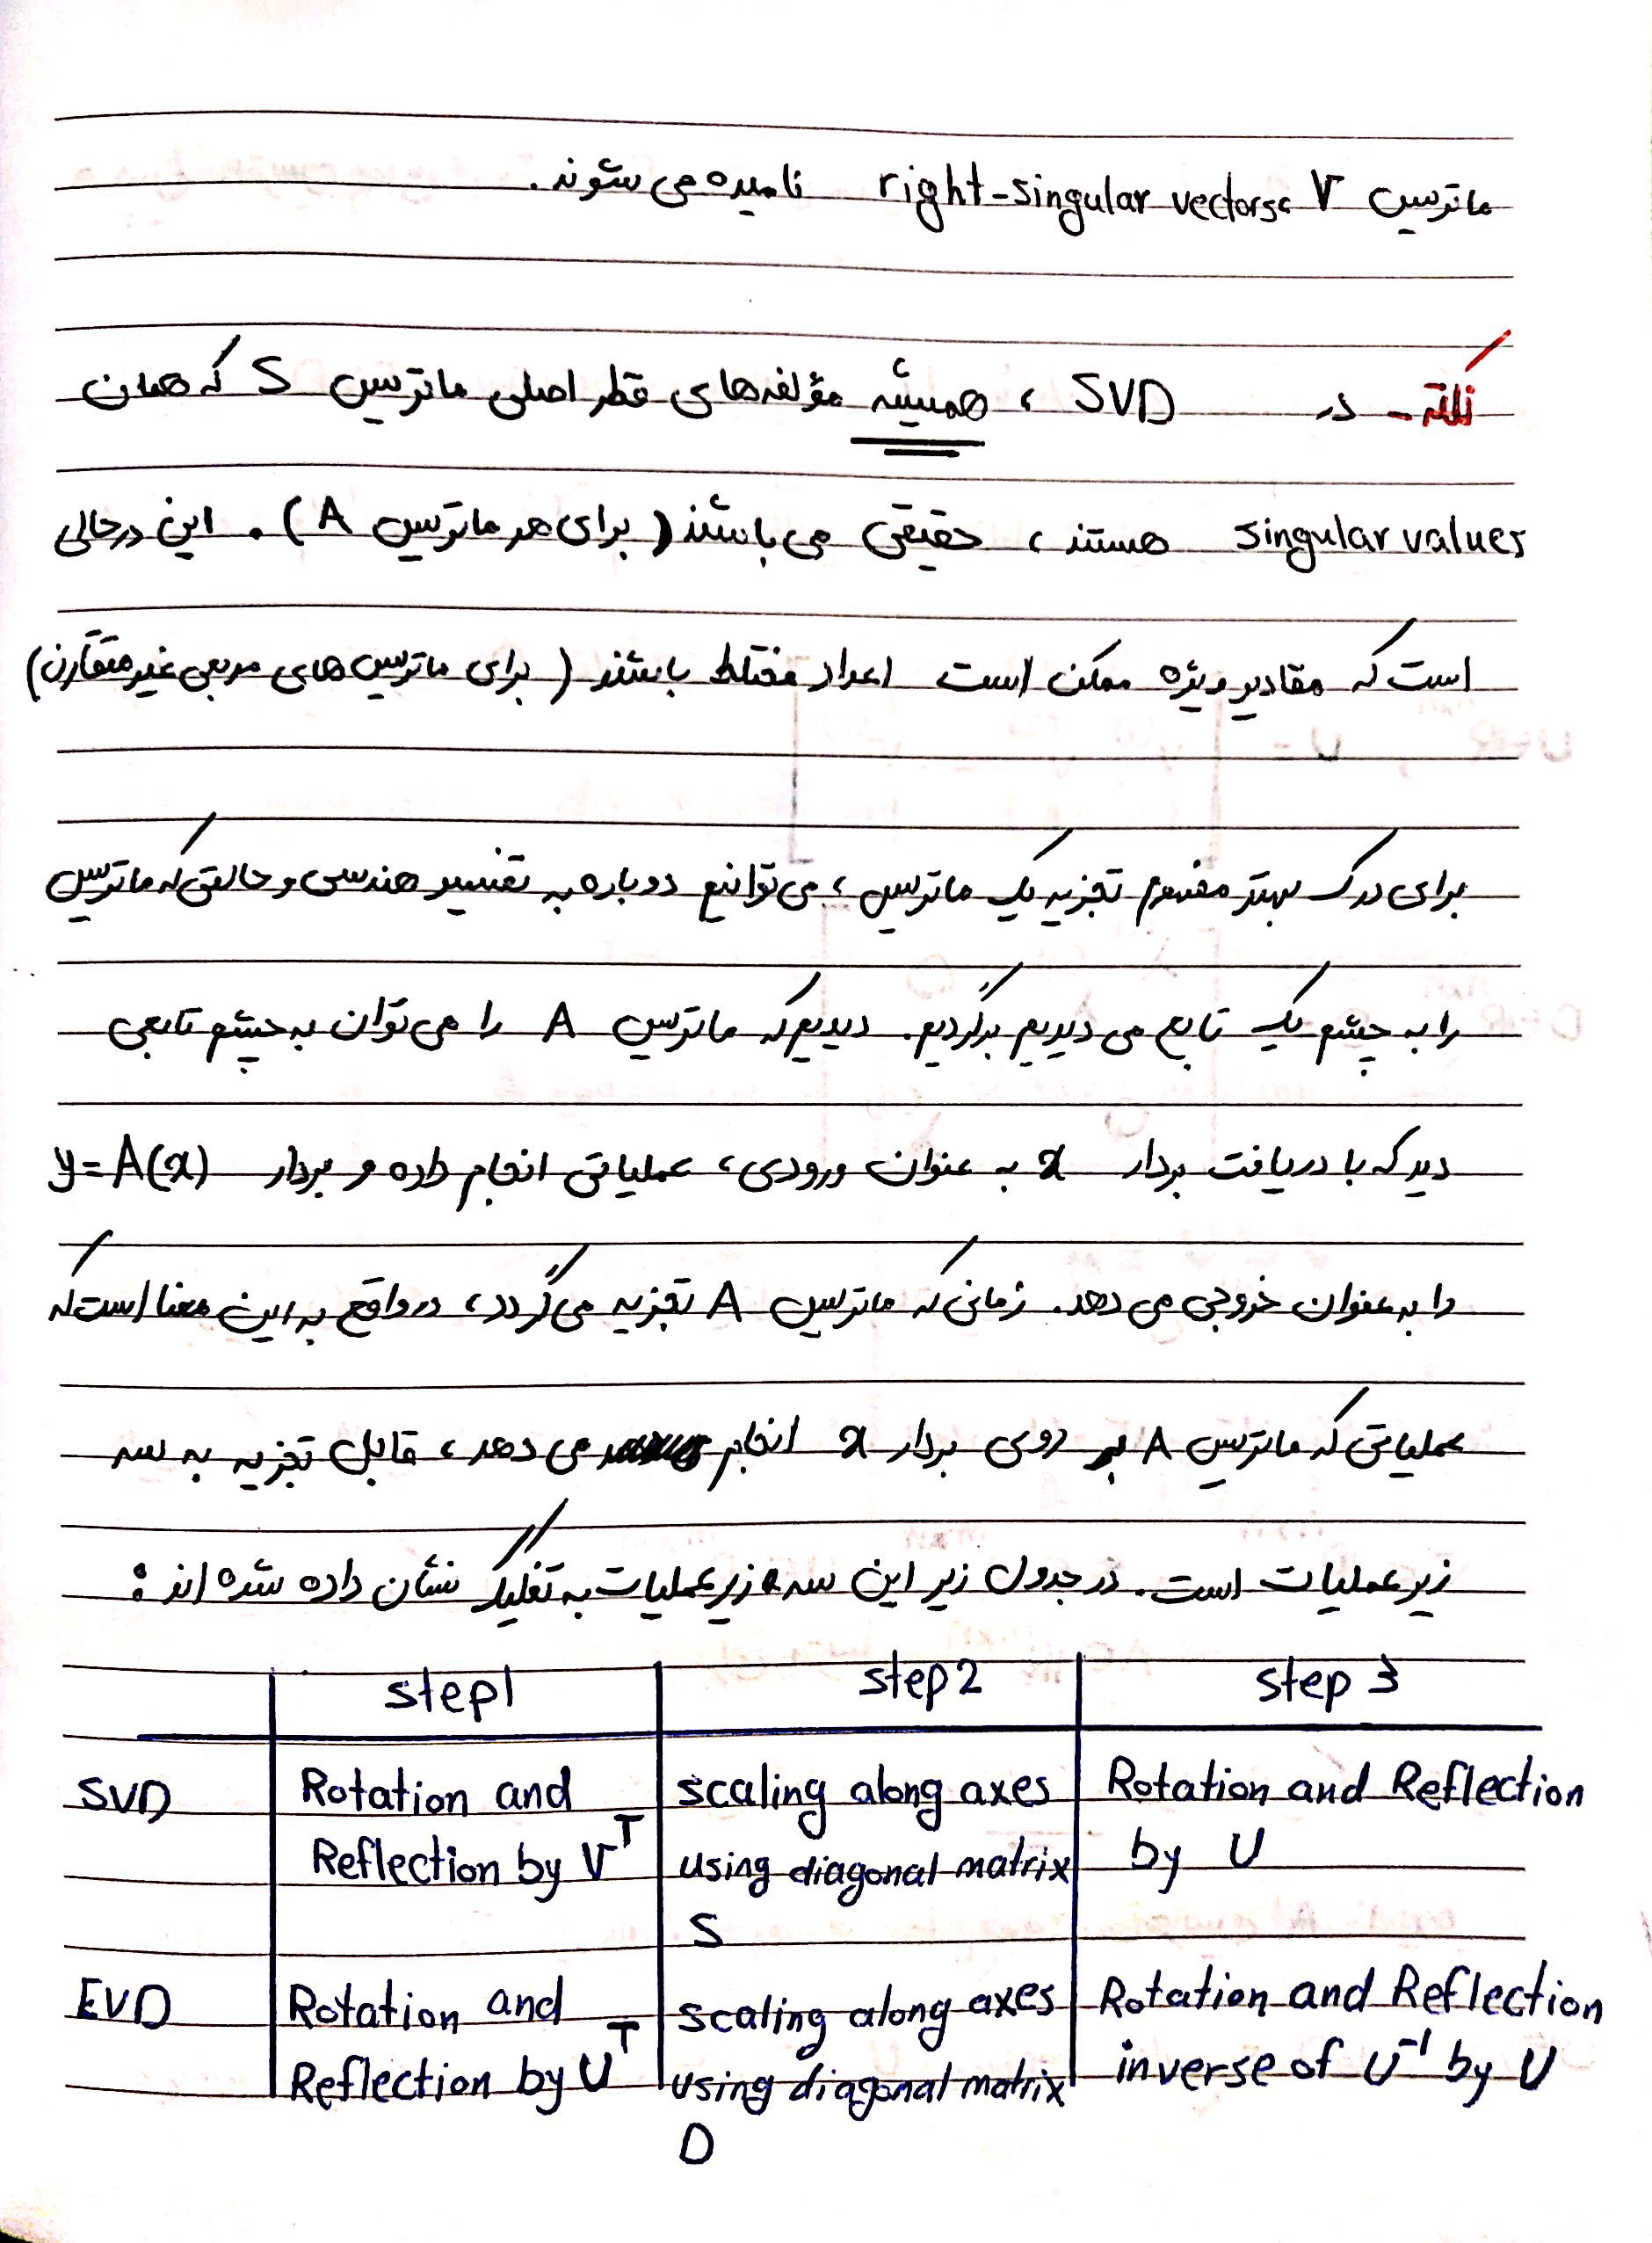 ماتریس V، right-singular vectors نامیده می شوند.
نکته - در SVD ، همیشه مؤلفه‌های قطر اصلی ماتریس S که همان
singular values هستند ، حقیقی می باشند ( برای هر ماتریس A ) . این درحالی
است که مقادیر ویژه ممکن است اعداد مختلط باشند ( برای ماتریس های مربعی غیر متقارن)
برای درک بهتر مفهوم تجزیه یک ماتریس ، می توانیم دوباره به تفسیر هندسی و حالتی که ماتریس
را به چشم یک تابع می دیدیم برگردیم. دیدیم که ماتریس A را می توان به چشم تابعی
دید که با دریافت بردار x به عنوان ورودی، عملیاتی انجام داده و بردار y = A(x)
را به عنوان خروجی می دهد. زمانی که ماتریس A تجزیه می گردد، در واقع به این معنا است که
عملیاتی که ماتریس A بر روی بردار x انجام می دهد، قابل تجزیه به سه
زیر عملیات است. در جدول زیر این سه زیر عملیات به تفکیک نشان داده شده اند :
step1 step2 step 3
SVD Rotation and scaling along axes Rotation and Reflection
Reflection by V^T using diagonal matrix by U
S
EVD Rotation and scaling along axes Rotation and Reflection
Reflection by U^T using diagonal matrix inverse of U^-1 by U
D